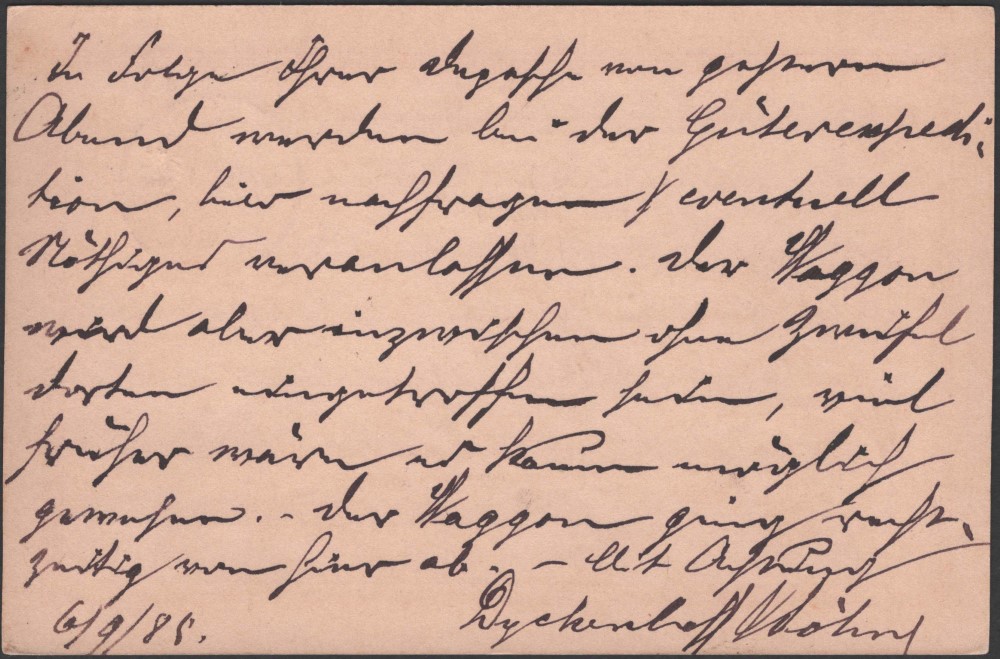 In Folge Ihrer Depesche von gestern
Abend werden bei der Güterexpedi-
tion, hier nachfragen & eventuell
Nöthiges veranlassen. Der Waggon
wird aber inzwischen ohne Zweifel
dorten eingetroffen sein, viel
früher wäre es kaum möglich
gewesen. – Der Waggon ging recht-
zeitig von hier ab. – Mit Achtung
6/9/85. Dyckerhoff Söhne